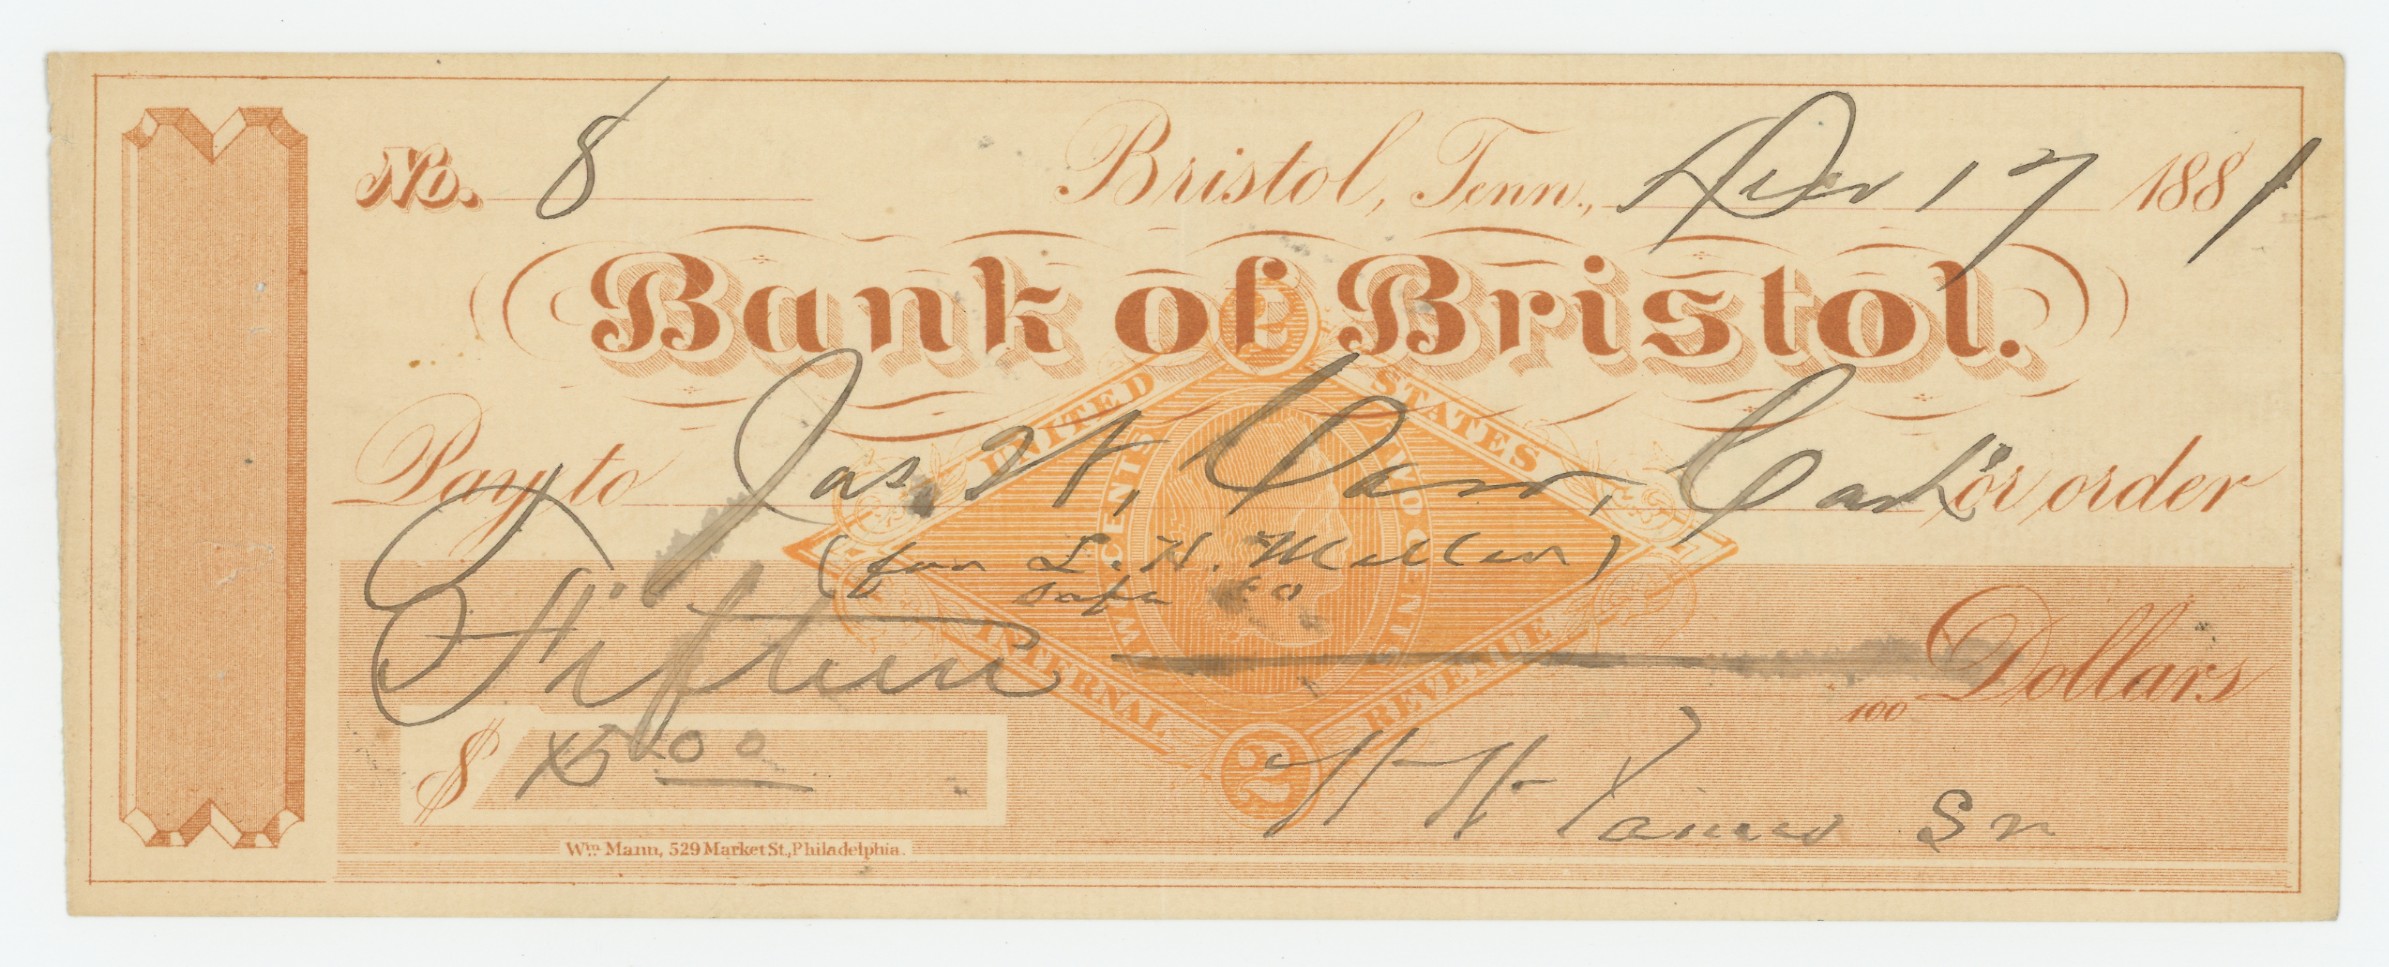 No. 8 Bristol, Tenn., 17 1881
Bank of Bristol.
Pay to Jas. H. or order
(for L. H. Miller)
safe to
Fifteen Dollars
100
$ 15.00
Sr
UNITED STATES
INTERNAL REVENUE
TWO CENTS
TWO CENTS
2
2
Wm. Mann, 529 Market St., Philadelphia.